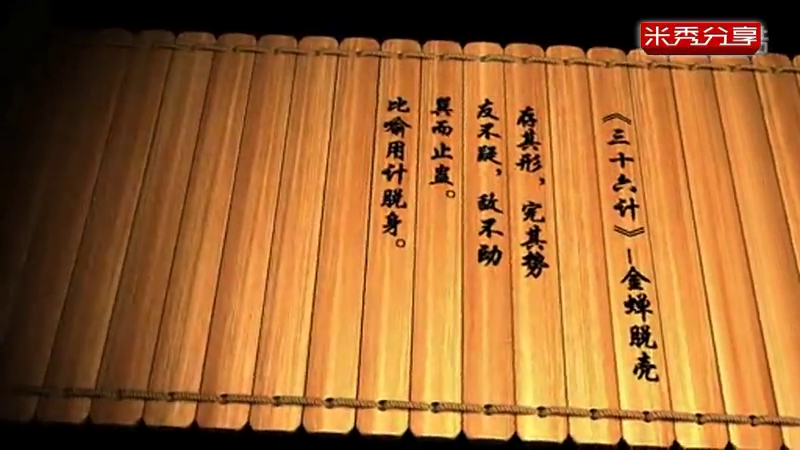 米秀分享
《三十六计》-金蝉脱壳
存其形，完其势
友不疑，敌不动
巽而止蛊。
比喻用计脱身。